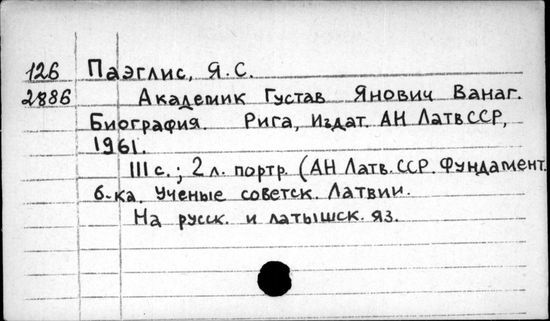 126 Паэглис, Я. С.
2886 Академик Густав Янович Ванаг.
Биография. Рига, Издат. АН ЛатвССР,
1961.
111 с.; 2 л. портр. (АН Латв. ССР. Фундамент.
б-ка. Ученые советск. Латвии.
На русск. и латышск. яз.